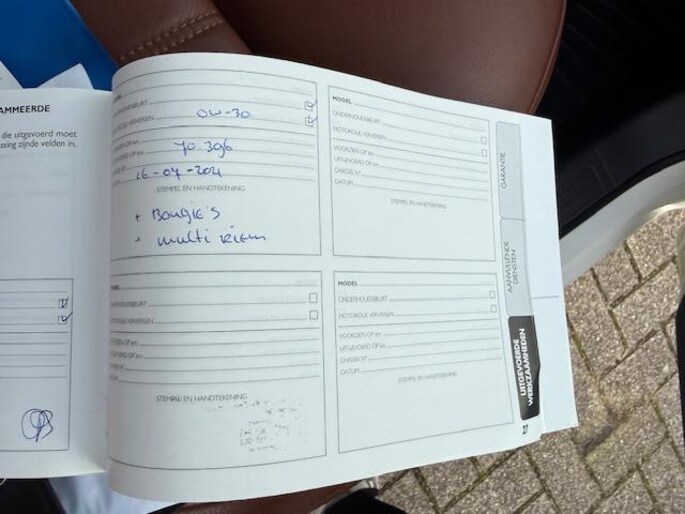 AMMEERDE
die uitgevoerd moet
ssing zijnde velden in.
0W-30
70.396
16-07-2021
STEMPEL EN HANDTEKENING
+ Bougie's
+ multi riem
MODEL
ONDERHOUDSBEURT
MOTOROLIE VERVERSEN
VOORZIEN OP km
UITGEVOERD OP km
CHASSIS N°
DATUM
STEMPEL EN HANDTEKENING
ONDERHOUDSBEURT
MOTOROLIE VERVERSEN
VOORZIEN OP km
UITGEVOERD OP km
CHASSIS N°
DATUM
STEMPEL EN HANDTEKENING
MODEL
ONDERHOUDSBEURT
MOTOROLIE VERVERSEN
VOORZIEN OP km
UITGEVOERD OP km
CHASSIS N°
DATUM
STEMPEL EN HANDTEKENING
GARANTIE
AANVULLENDE
DIENSTEN
UITGEVOERDE
WERKZAAMHEDEN